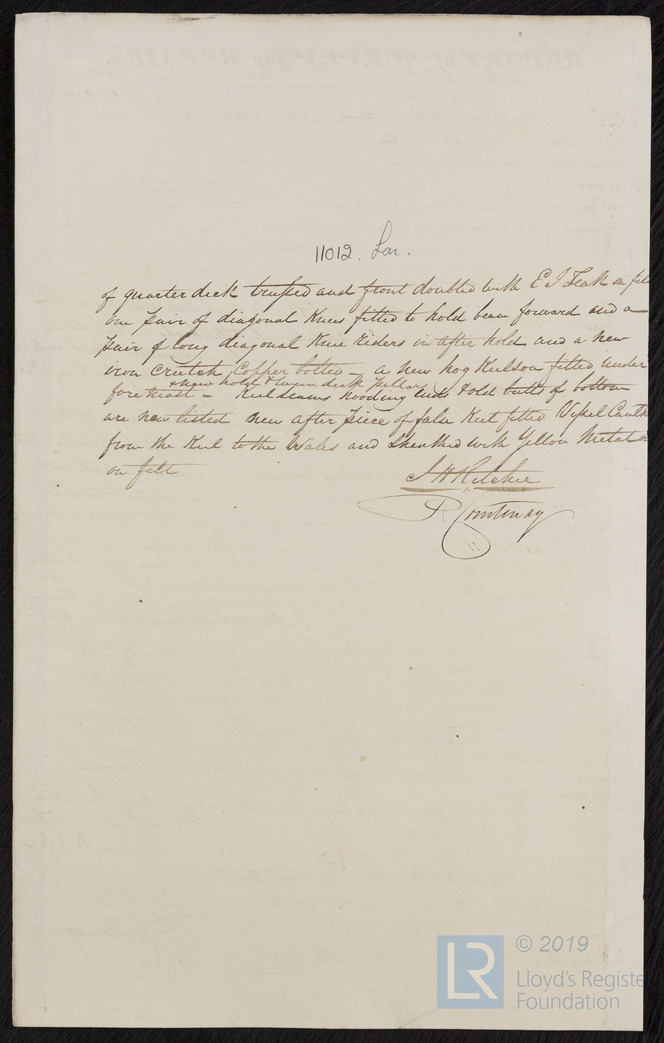 11012. Lon.
of quarter deck trussed and front doubled with E I Teak on felt
one pair of diagonal Knees fitted to hold beam forward and a
pair of long diagonal Knee Riders in after hold and a new
iron crutch Copper bolted - a new hog Keelson fitted under
+ new hold & lower deck Pillars
foremast - Keel seams hooding ends & old butts of bottom
are new listed new after piece of false Keel fitted Vessel Caulked
from the Keel to the Wales and Sheathed with Yellow Metal
on felt
J H Ritchie
R Courtenay
© 2019
LR
Lloyd's Register
Foundation